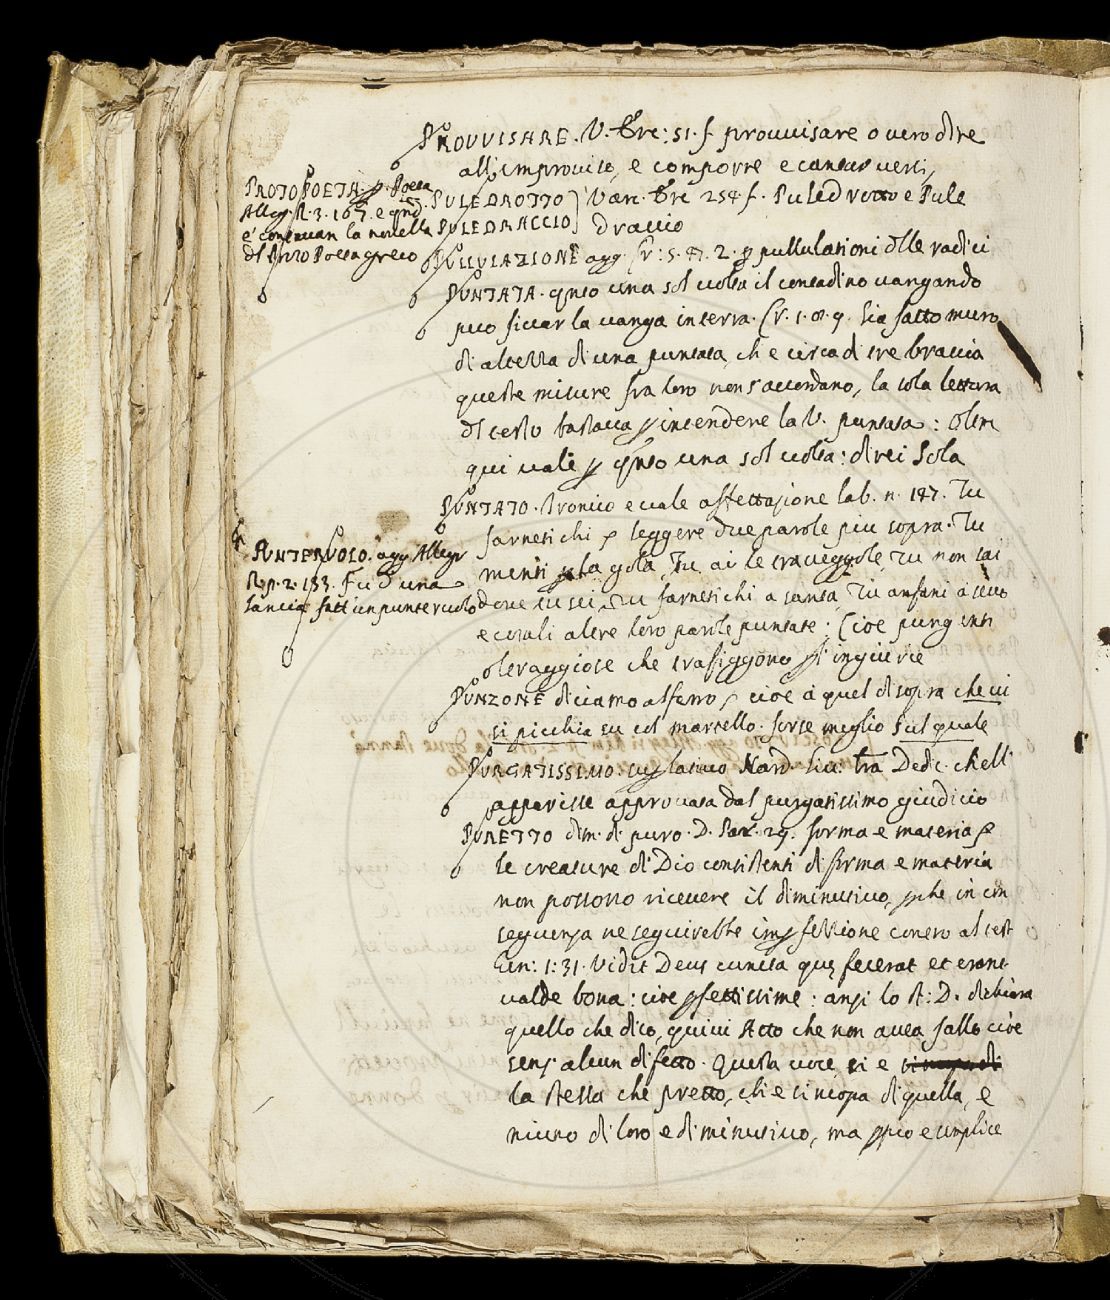 PROVVISARE. V. Erc: 51. f provvisare o vero dire
all'improviso, e comporre e cantar versi,
PROTOPOETA. p. Poeta
Alleg. R. 3. 167. e qnd.
e' contavan la novella
dl Proto Poeta greco
PULEDROTTO } Varc. Erc 254 f. Puledrotto e Pule
PULEDRACCIO } draccio
PULLULAZIONE agg. Cr: 5. 2. p pullulationi dlle radici
PUNTATA. qnto una sol volta il contadino vangando
puo ficcar la vanga in terra. Cr. 1. 8. 9. sia fatto muro
di altezza di una puntata, ch e circa di tre braccia
queste misure fra loro non s'accordano, la sola lettura
dl testo bastava p intendere la V. puntata: oltre
qui vale p qnto una sol volta: direi Sola
PUNTATO. Ironico e vale affettazione lab. n. 187. Tu
farnetichi p leggere due parole piu sopra. Tu
menti p la gola, Tu ai le traveggole, Tu non sai
PUNTERUOLO. agg Allegr
R. p. 2. 133. Fu d'una
lancia fatt' un punteruolo
dove tu sei, Tu farnetichi a santà, Tu anfani a secco
e cotali altre loro parole puntate: Cioe pungenti
oltraggiose che trafiggono p l'ingiurie
PUNZONE diciamo al ferro p cioe à quel di sopra che vi
si picchia su col martello. forse meglio sul quale
PURGATISSIMO. suplativo Nard. Liv: tra Dedic. ch'ell'
apparisse approvata dal purgatissimo giudicio
PURETTO dim. di puro. D. Par. 29. forma e materia p
le creature di Dio consistenti di forma e materia
non possono ricevere il diminutivo, pche in con
seguenza ne seguirebbe impfettione contro al test
Gen: 1: 31. Vidit Deus cuncta quę fecerat et erant
valde bona: cioe pfettissime: anzi lo st: D. dichiara
quello che dico, quivi Atto che non avea fallo cioe
senz' alcun difetto. Questa voce si e
la stessa che pretto, ch e sincopa di quella, e
niuno di loro e diminutivo, ma ppio e simplice